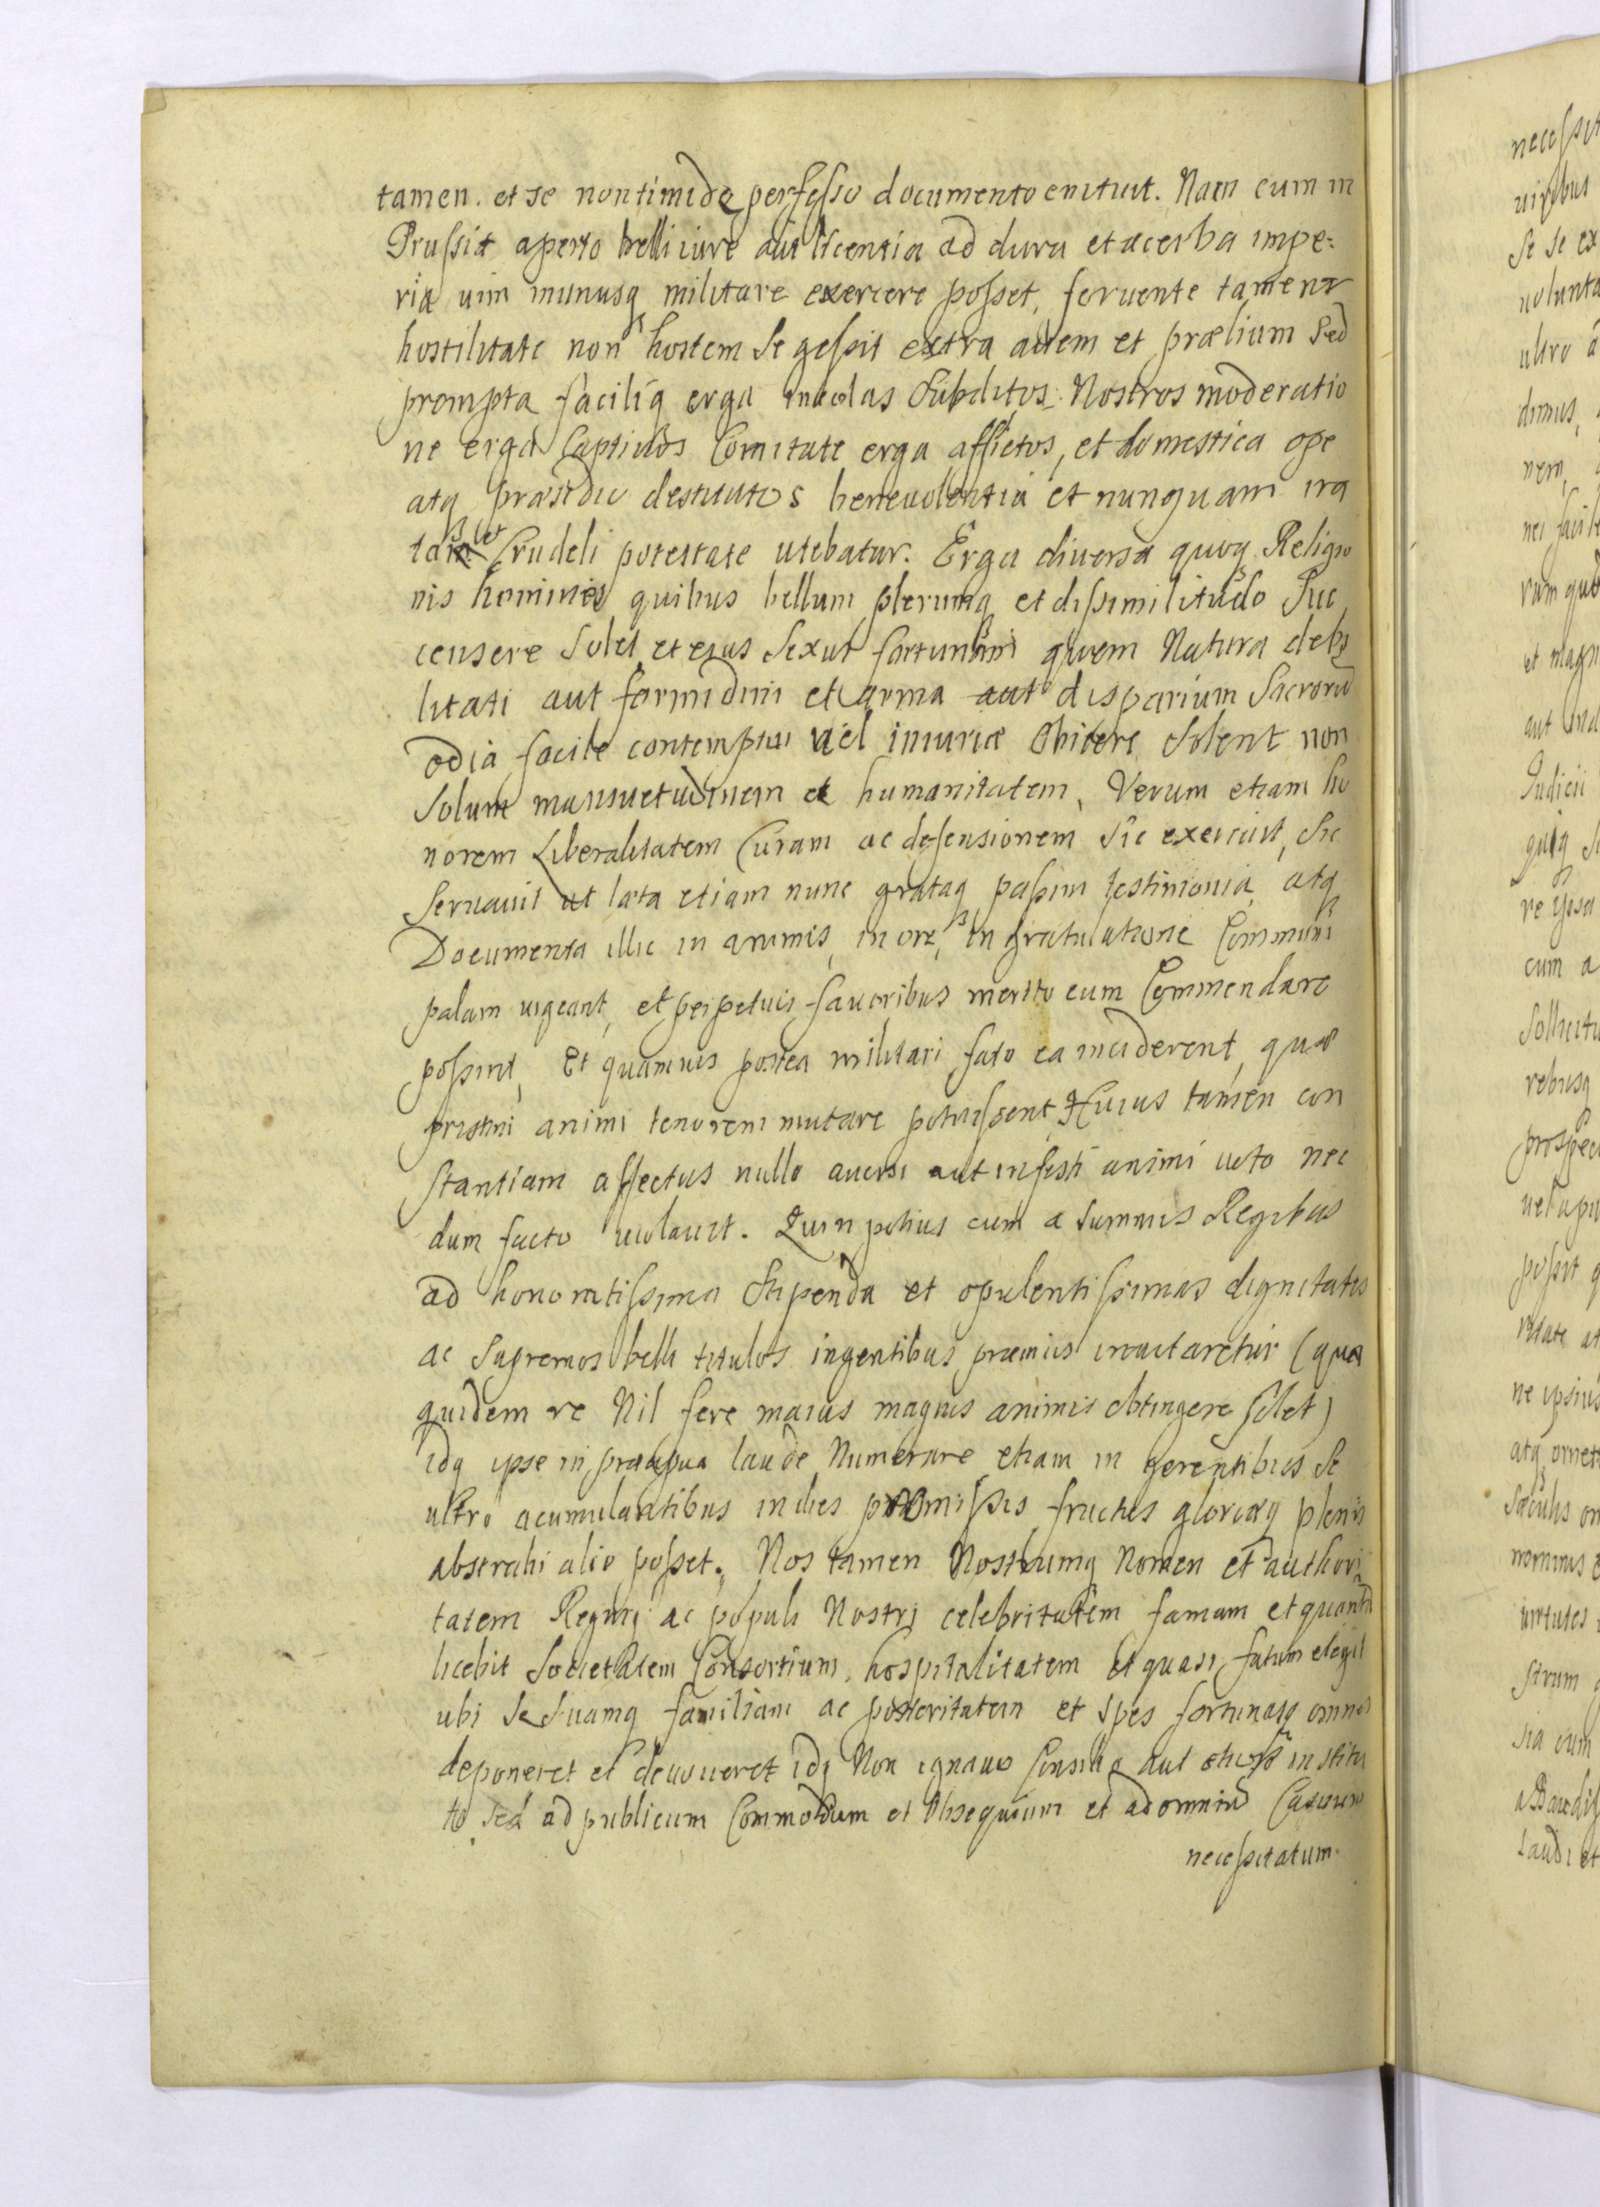 tamen. et se non timide perfesso documento enituit. Nam cum in
Prussia aperto belli iure aut licentia ad dura et acerba impe:
ria uim munusq militare exercere posset, feruente tamen
hostilitate non hostem se gessit extra aciem et prælium sed
prompta faciliq erga incolas subditos Nostros moderatio
ne erga Captiuos Comitate erga afflictos, et domestica ope
atq præsidio destitutos beneuolentia et nunquam ira
Crudeli potestate utebatur. Erga diuersa quoq Religio
nis homines quibus bellum plerumq et dissimilitudo Suc
censere solet et eius sexus fortunam quem Natura debi
litati aut formidini et arma aut disparium Sacrorū
odia facile contemptui uel iniuriæ Obicere solent non
solum mansuetudinem et humanitatem, Verum etiam ho
norem Liberalitatem Curam ac defensionem sic exercuit, sic
seruauit ut læta etiam nunc grataq passim testimonia atq
Documenta illic in animis, in ore, in gratulatione Communi
palam uigeant, et perpetuis fauoribus merito eum Commendare
possint, Et quamuis postea militari fato ea inciderent, quæ
pristini animi tenorem mutare potuissent, Huius tamen con
stantiam affectus nullo auersi aut infesti animi uoto nec
dum facto uiolauit. Quin potius cum a summis Regibus
ad honoratissima stipendia et opulentissimas dignitates
ac supremos belli titulos ingentibus præmiis inuitaretur (qua
quidem re Nil fere maius magnis animis obtingere solet)
idq ipse in præcipua laude Numerare etiam in gerentibus se
ultro acumulantibus indies promissis fructus gloriæq plenis
abstrahi alio posset. Nos tamen Nostrumq Nomen et authori
tatem Regniq ac populi Nostri celebritatem famam et quantū
licebit societatem Consortium, hospitalitatem et quasi fatum elegit
ubi se suamq familiam ac posteritatem et spes fortunasq omnes
deponeret et deuoueret idq Non ignauo Consilio aut otioso institu
to sed ad publicum Commodum et Obsequium et ad omniū Casuum
necessitatum